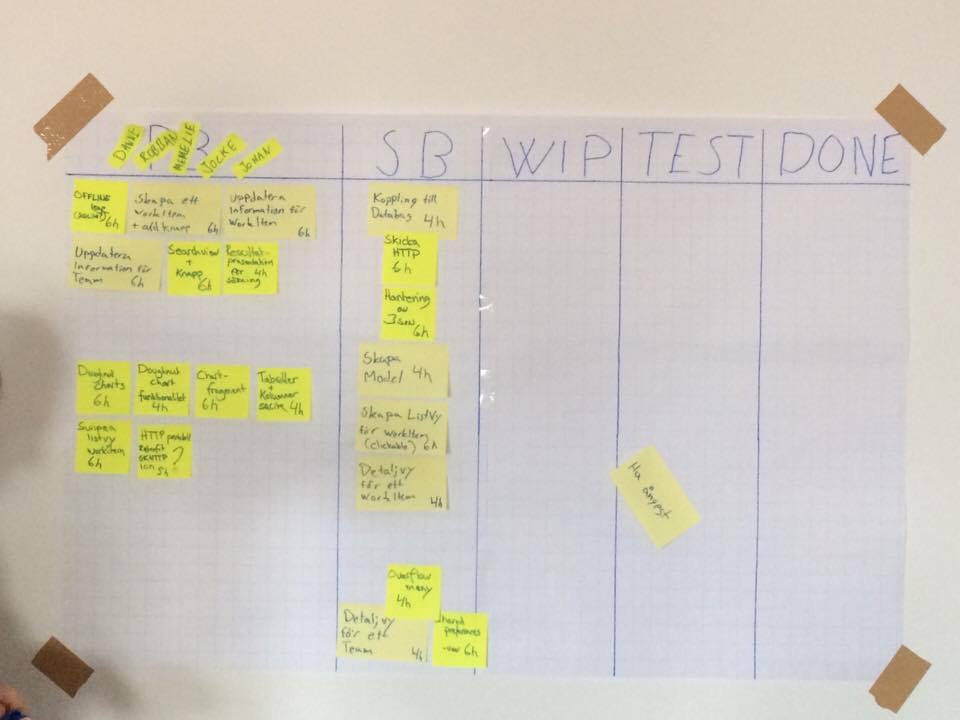 DANNE
ROBBAN
MEMELIE
JOCKE
JOHAN
PB
SB
WIP
TEST
DONE
OFFLINE
6h
Skapa ett
workItem
+ add knapp 6h
Uppdatera
Information för
WorkItem
6h
Uppdatera
Information för
Team 6h
Searchview
+
Knapp
6h
Resultat-
presentation
för 4h
sökning
Doughnut
charts
6h
Doughnut
chart
funktionalitet
4h
Chart-
fragment
6h
Tabeller
+
Kolumner
4h
Swipea
listvy
workitem
6h
HTTP protokoll
Retrofit
OKHTTP ?
ion 5h
Koppling till
Databas 4h
Skicka
HTTP
6h
Hantering
av
JSON
6h
Skapa
Model 4h
Skapa ListVy
för workItem
(clickable) 6h
Detaljvy
för ett
workItem 4h
Overflow
meny
4h
Detaljvy
för ett
Team 4h
shared
preferences
6h
Ha ångest